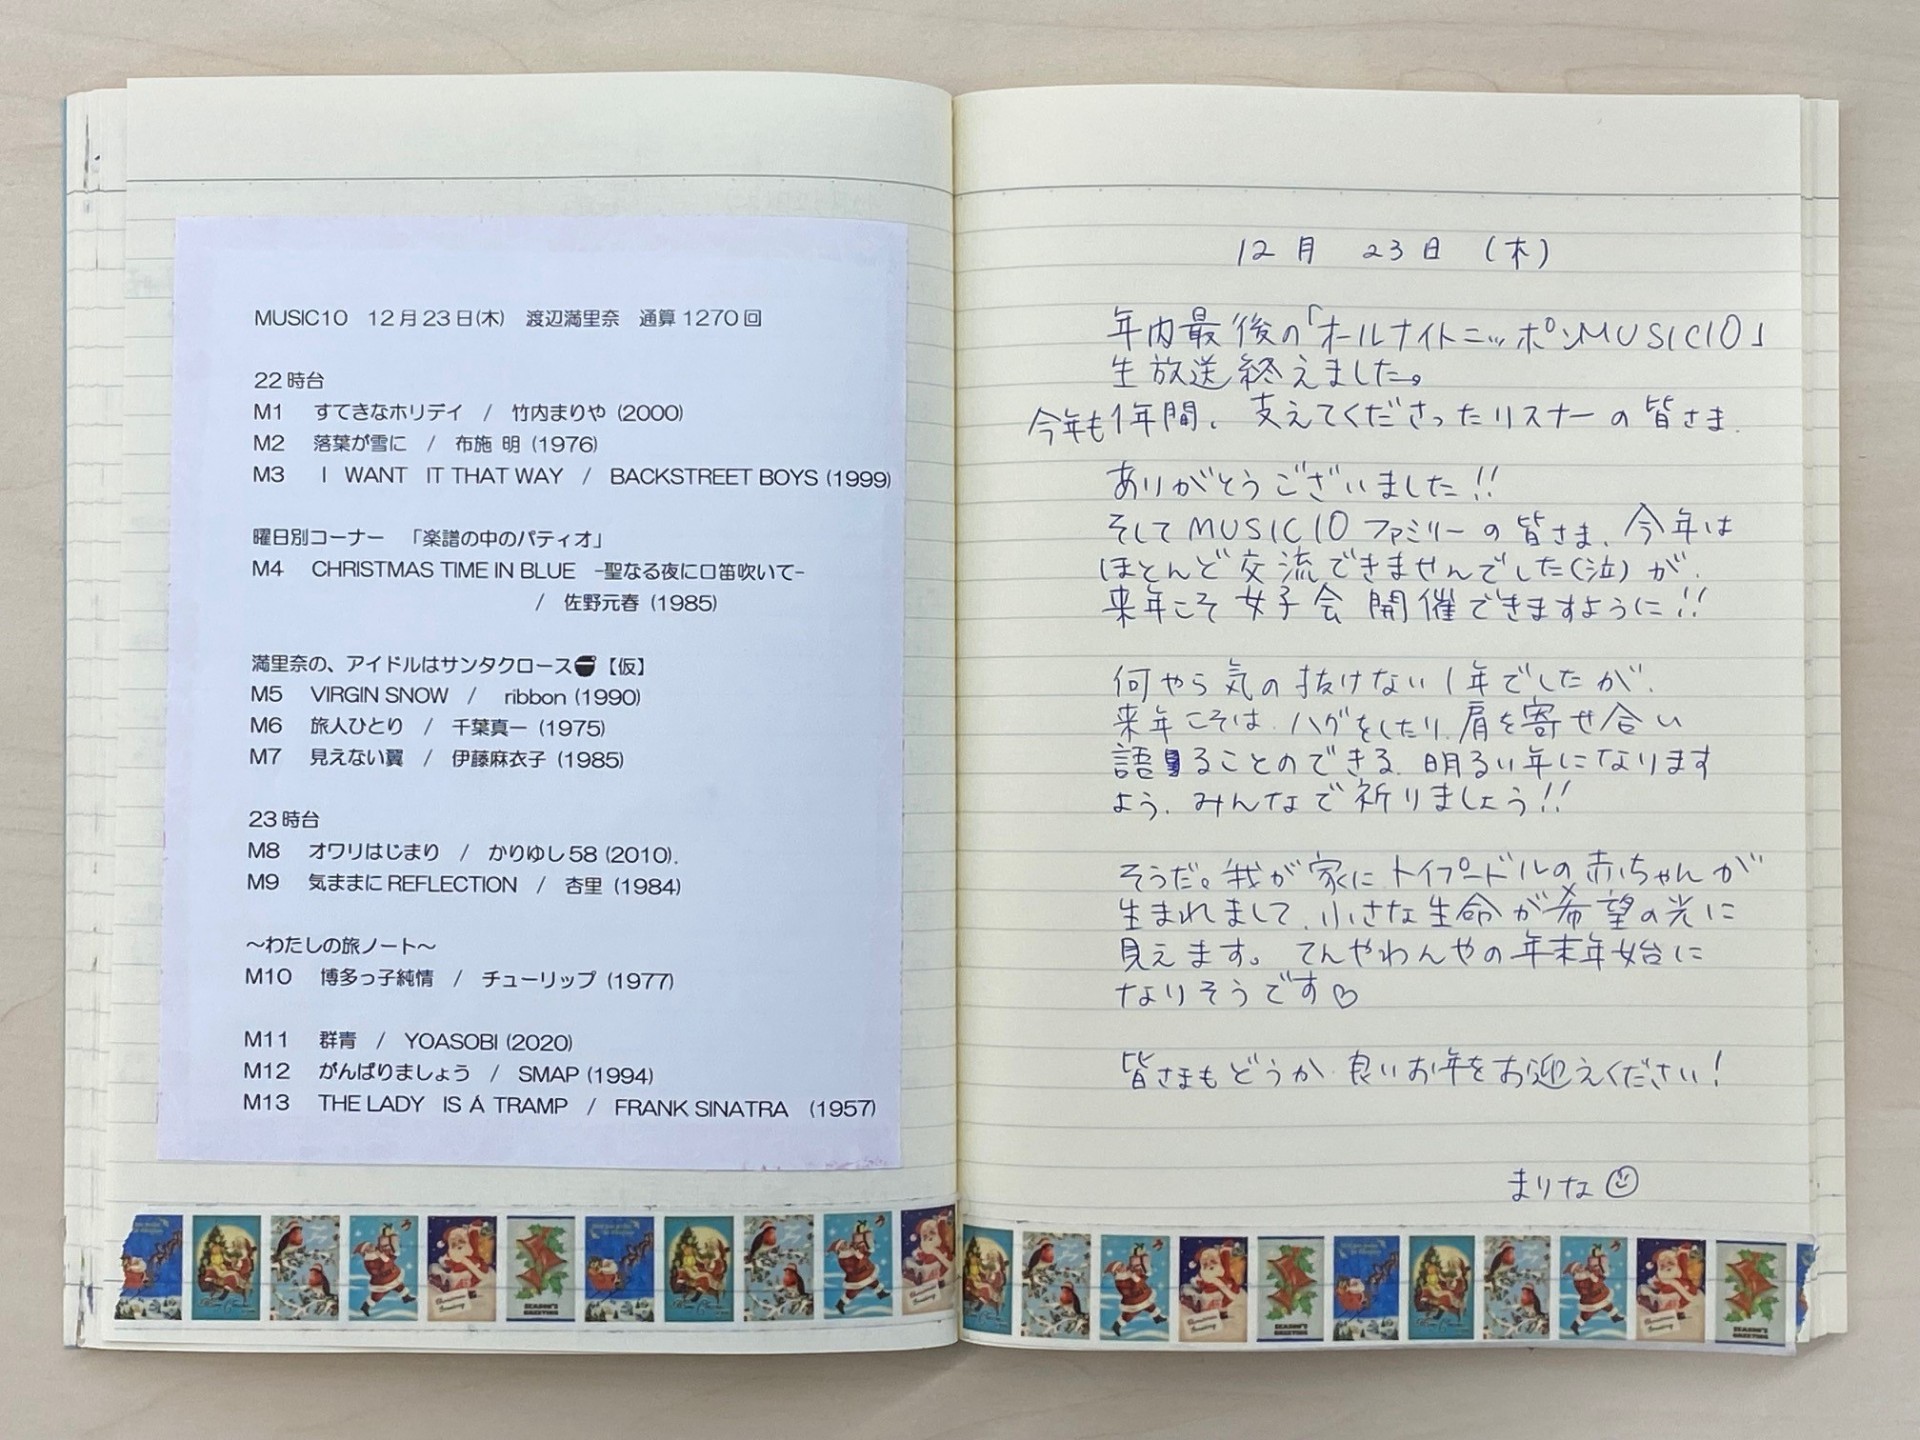 MUSIC10 12月23日(木) 渡辺満里奈 通算1270回
22時台
M1 すてきなホリデイ / 竹内まりや (2000)
M2 落葉が雪に / 布施 明 (1976)
M3 I WANT IT THAT WAY / BACKSTREET BOYS (1999)
曜日別コーナー 「楽譜の中のパティオ」
M4 CHRISTMAS TIME IN BLUE -聖なる夜に口笛吹いて-
/ 佐野元春 (1985)
満里奈の、アイドルはサンタクロース【仮】
M5 VIRGIN SNOW / ribbon (1990)
M6 旅人ひとり / 千葉真一 (1975)
M7 見えない翼 / 伊藤麻衣子 (1985)
23時台
M8 オワリはじまり / かりゆし58 (2010).
M9 気ままにREFLECTION / 杏里 (1984)
～わたしの旅ノート～
M10 博多っ子純情 / チューリップ (1977)
M11 群青 / YOASOBI (2020)
M12 がんばりましょう / SMAP (1994)
M13 THE LADY IS A TRAMP / FRANK SINATRA (1957)
12月 23日 (木)
年内最後の「オールナイトニッポンMUSIC10」
生放送終えました。
今年も1年間、支えてくださったリスナーの皆さま、
ありがとうございました!!
そしてMUSIC10ファミリーの皆さま、今年は
ほとんど交流できませんでした(泣)が、
来年こそ女子会開催できますように!!
何やら気の抜けない1年でしたが、
来年こそは、ハグをしたり、肩を寄せ合い
語ることのできる、明るい年になります
よう、みんなで祈りましょう!!
そうだ。我が家にトイプードルの赤ちゃんが
生まれまして、小さな生命が希望の光に
見えます。てんやわんやの年末年始に
なりそうです♡
皆さまもどうか良いお年をお迎えください!
まりな☺
SEASON'S
GREETING
SEASON'S
GREETING
SEASON'S
GREETING